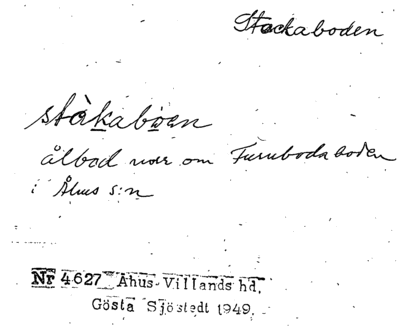 Stackaboden
stàkaboen
ålbod norr om Furuboda boden
i Åhus s:n
Nr 4627 Åhus-Villands hd.
Gösta Sjöstedt 1949.